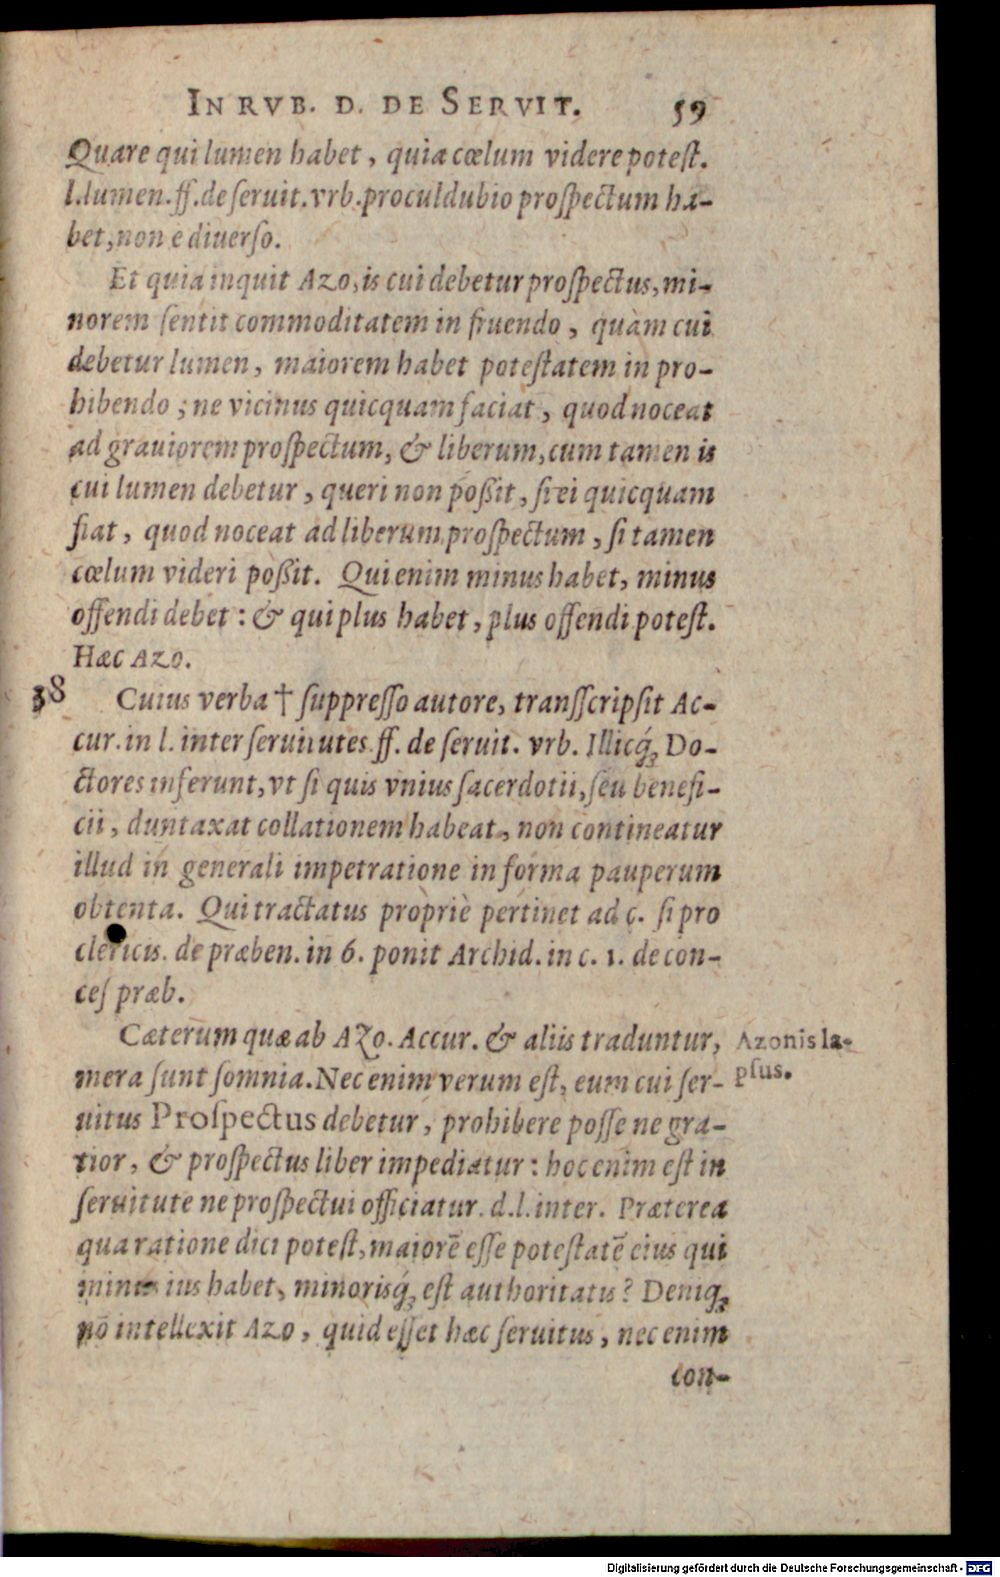 IN RVB. D. DE SERVIT. 59
Quare qui lumen habet, quia cœlum videre potest.
l. lumen. ff. de seruit. vrb. proculdubio prospectum ha-
bet, non è diuerso.
Et quia inquit Azo, is cui debetur prospectus, mi-
norem sentit commoditatem in fruendo, quàm cui
debetur lumen, maiorem habet potestatem in pro-
hibendo; ne vicinus quicquam faciat, quod noceat
ad grauiorem prospectum, & liberum, cum tamen is
cui lumen debetur, queri non poßit, si ei quicquam
fiat, quod noceat ad liberum prospectum, si tamen
cœlum videri poßit. Qui enim minus habet, minus
offendi debet: & qui plus habet, plus offendi potest.
Hæc Azo.
38 Cuius verba † suppresso autore, transscripsit Ac-
cur. in l. inter seruitutes. ff. de seruit. vrb. Illicq́ꝫ Do-
ctores inferunt, vt si quis vnius sacerdotii, seu benefi-
cii, duntaxat collationem habeat, non contineatur
illud in generali impetratione in forma pauperum
obtenta. Qui tractatus propriè pertinet ad c. si pro
clericis. de præben. in 6. ponit Archid. in c. 1. de con-
ces præb.
Cæterum quæ ab Azo. Accur. & aliis traduntur, Azonis la-
mera sunt somnia. Nec enim verum est, eum cui ser- psus.
uitus Prospectus debetur, prohibere posse ne gra-
tior, & prospectus liber impediatur: hoc enim est in
seruitute ne prospectui officiatur. d. l. inter. Præterea
qua ratione dici potest, maiorē esse potestatē eius qui
minus ius habet, minorisq́ꝫ est authoritatis? Deniqꝫ
nō intellexit Azo, quid esset hæc seruitus, nec enim
con-
Digitalisierung gefördert durch die Deutsche Forschungsgemeinschaft - DFG